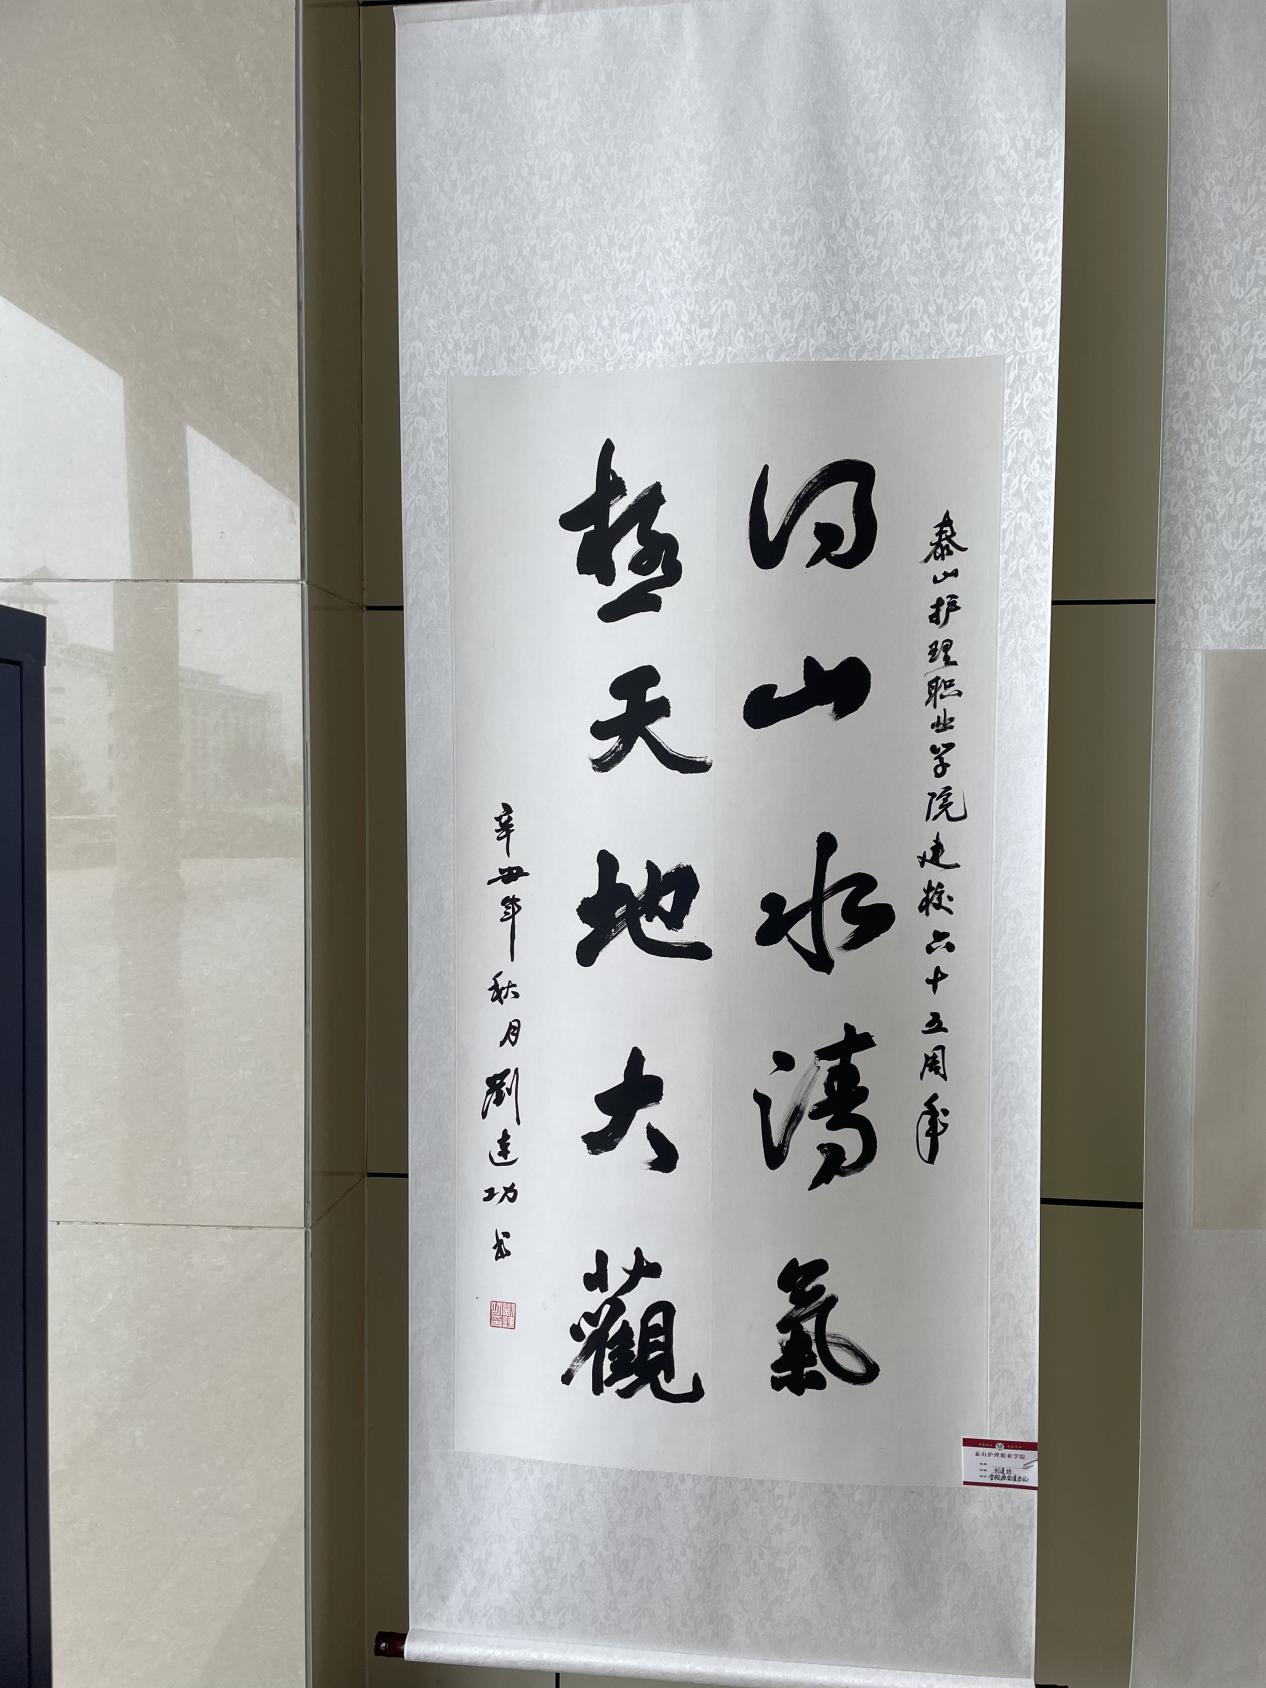 泰山护理职业学院建校六十五周年
得山水清氣
極天地大觀
辛丑年秋月劉建功书
泰山护理职业学院